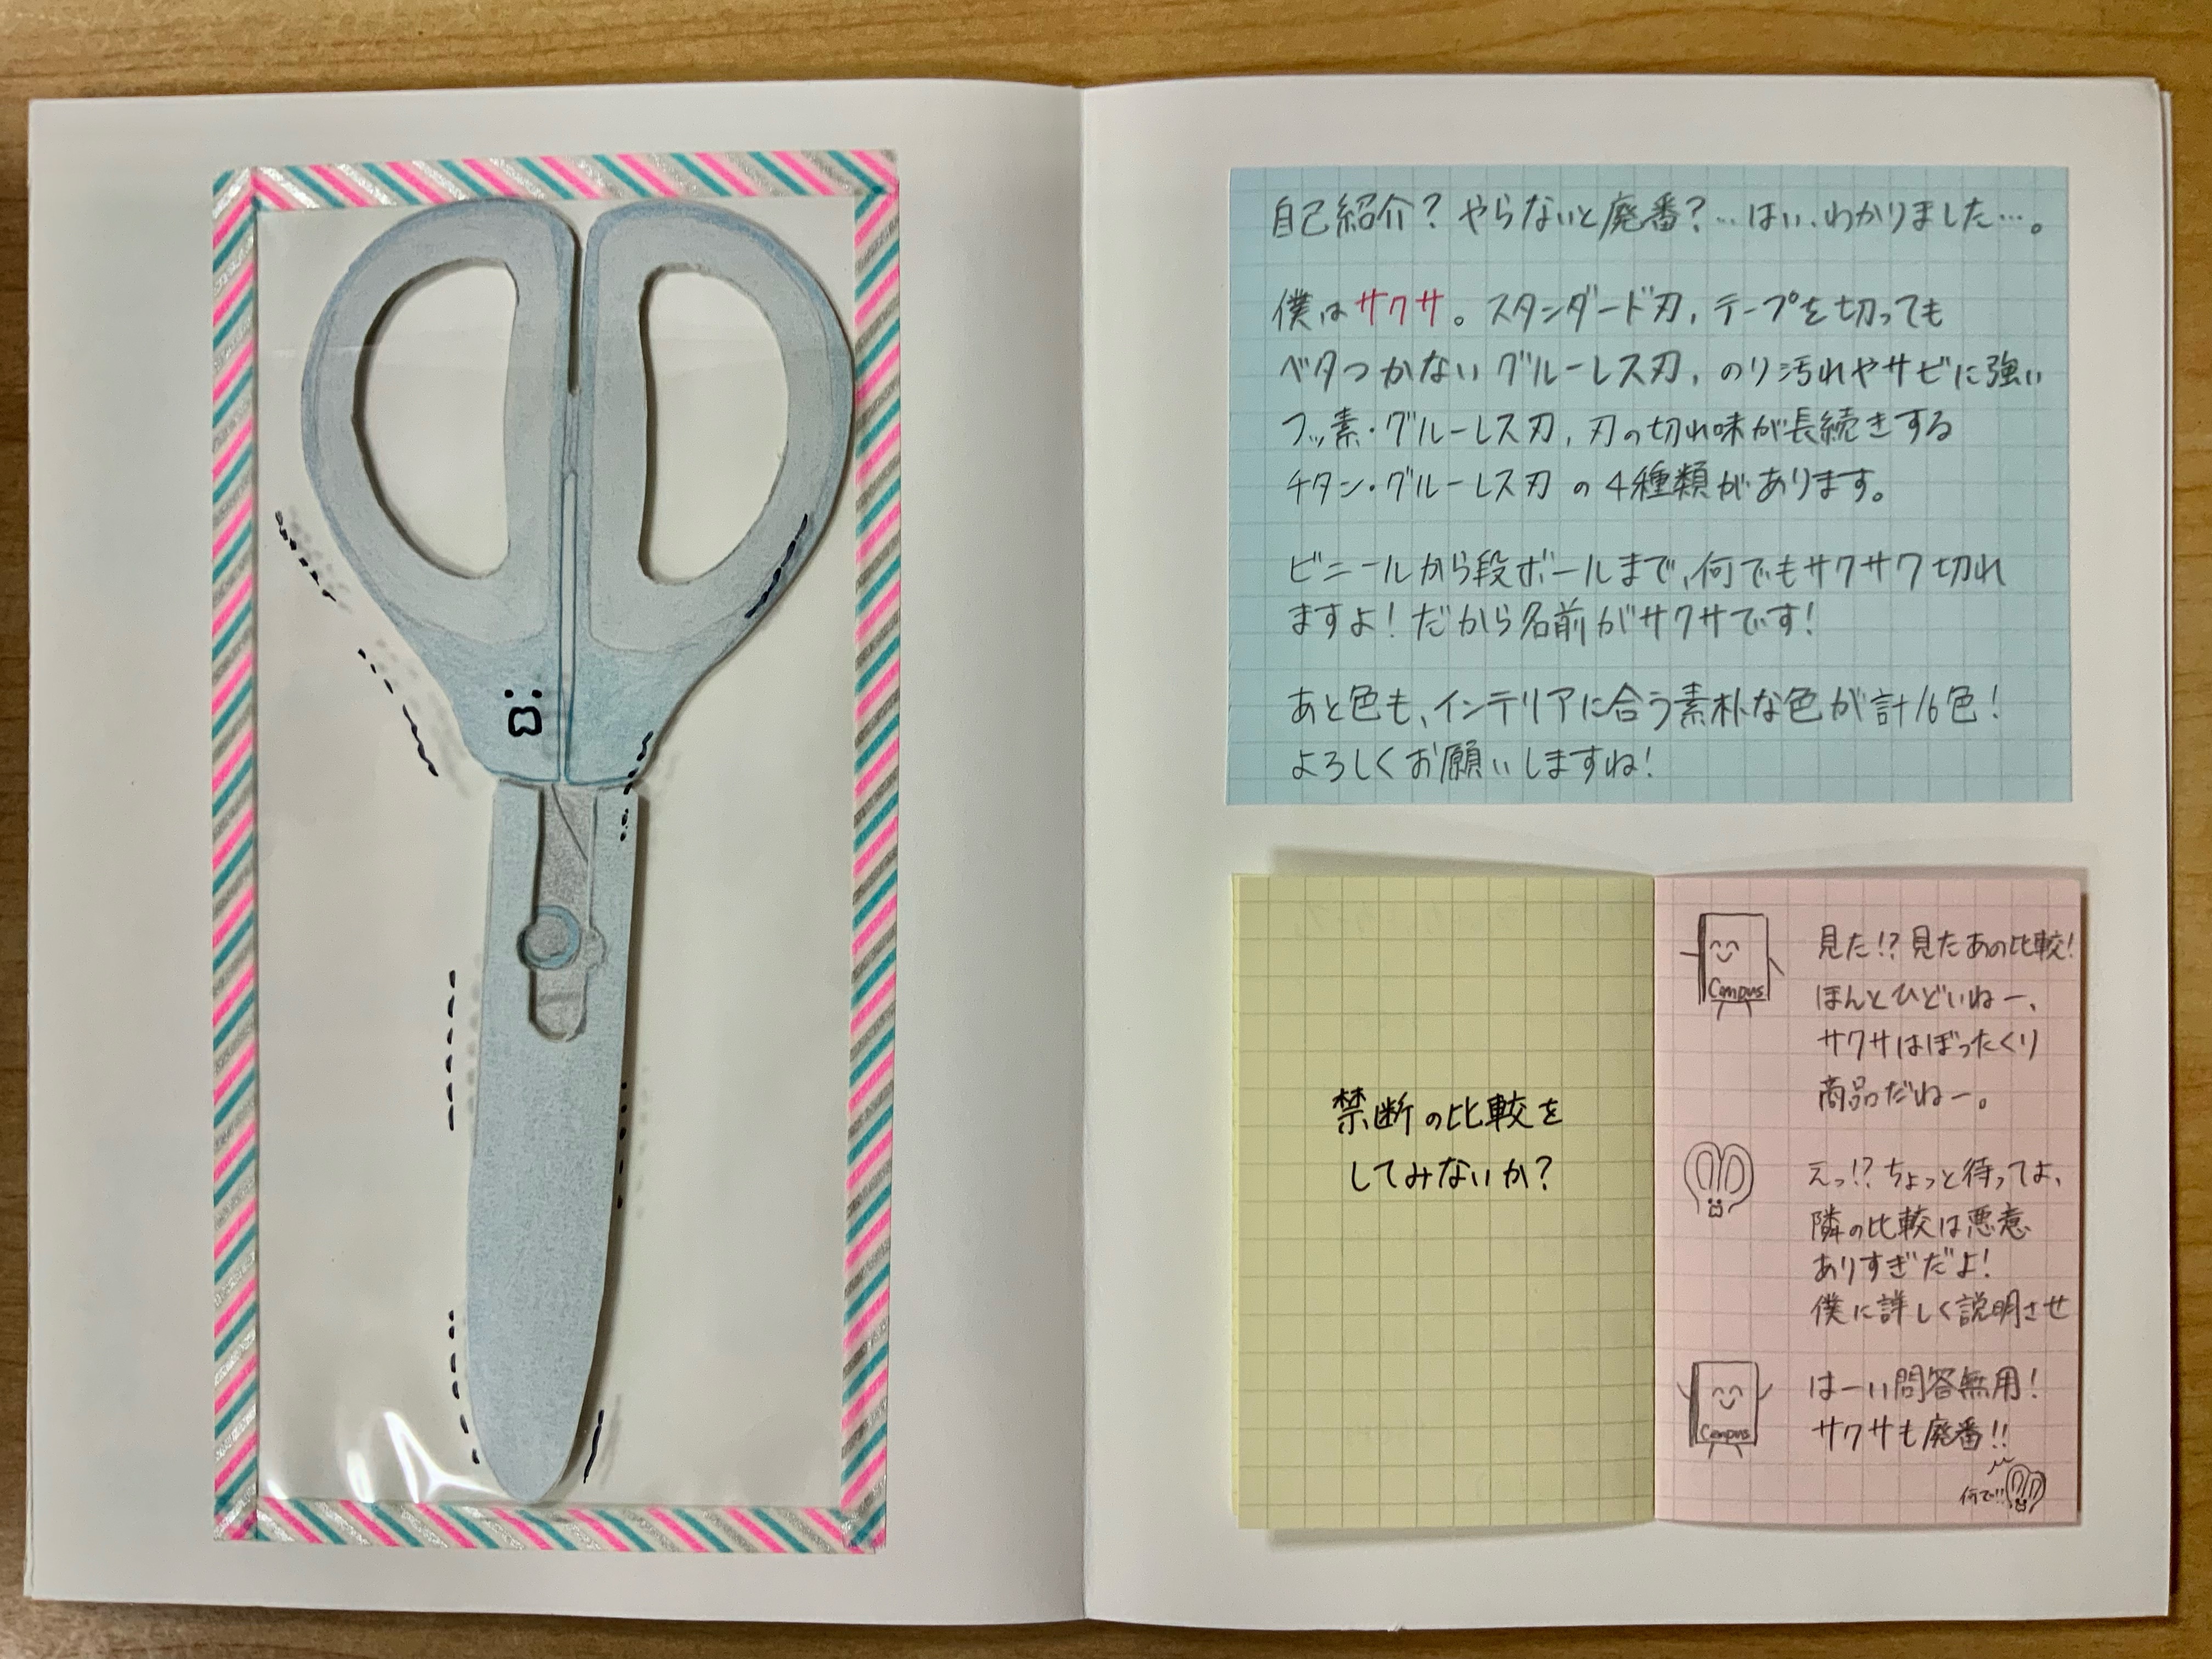 自己紹介？やらないと廃番？…はい、わかりました…。
僕はサクサ。スタンダード刃，テープを切っても
ベタつかないグルーレス刃，のり汚れやサビに強い
フッ素・グルーレス刃，刃の切れ味が長続きする
チタン・グルーレス刃の4種類があります。
ビニールから段ボールまで、何でもサクサク切れ
ますよ！だから名前がサクサです！
あと色も、インテリアに合う素朴な色が計16色！
よろしくお願いしますね！
禁断の比較を
してみないか？
見た!?見たあの比較！
ほんとひどいねー、
サクサはぼったくり
商品だねー。
Campus
えっ!?ちょっと待ってよ、
隣の比較は悪意
ありすぎだよ！
僕に詳しく説明させ
はーい問答無用！
サクサも廃番!!
Campus
何で!!